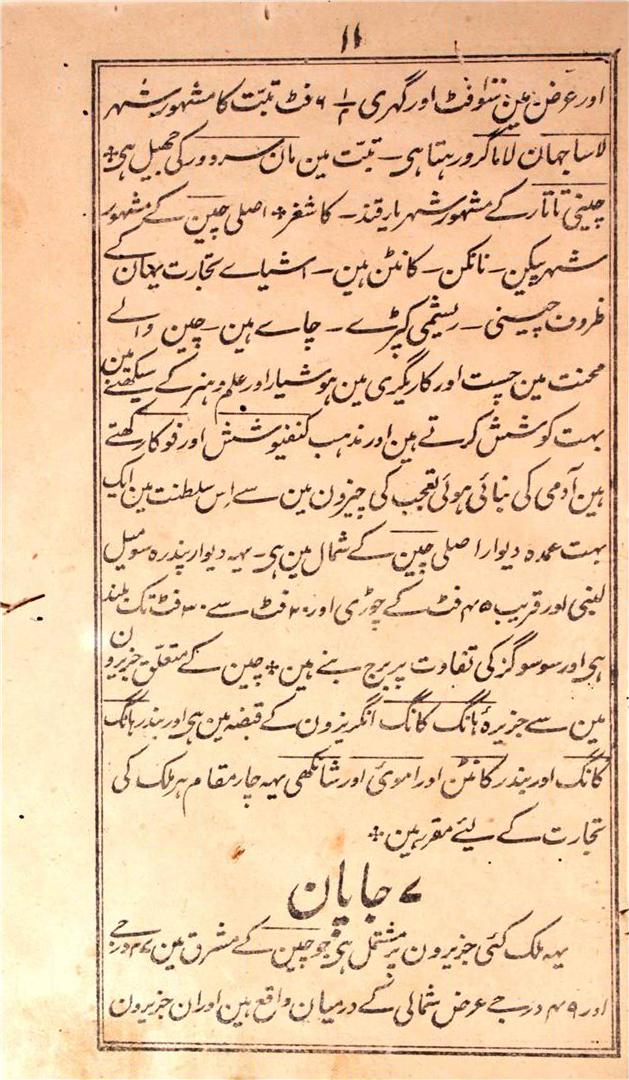 ۱۱
اور عرض مین سو فٹ اور گہری ۶ ۱/۲ فٹ تبت کا مشہور شہر
لاسا جہان لاما گرو رہتا ہی ۔ تبت مین مان سروور کی جھیل ہی ✣
چینی تاتار کے مشہور شہر یارقند ۔ کاشغر ✣ اصلی چین کے مشہور
شہر پیکن ۔ نانکن ۔ کانٹن ہین ۔ اشیاے تجارت یہان کے
ظروف چینی ۔ ریشمی کپڑے ۔ چاے ہین ۔ چین والے
محنت مین چست اور کاریگری مین ہوشیار اور علم و ہنر کے سیکھنے مین
بہت کوشش کرتے ہین اور مذہب کنفیوشش اور فو کا رکھتے
ہین آدمی کی بنائی ہوئی تعجب کی چیزون مین سے اس سلطنت مین ایک
بہت عمدہ دیوار اصلی چین کے شمال مین ہی ۔ یہہ دیوار پندرہ سو میل
لنبی اور قریب ۴۵ فٹ کے چوڑی اور ۲۰ فٹ سے ۳۰ فٹ تک بلند
ہی اور سو سو گز کی تفاوت پر برج بنے ہین ✣ چین کے متعلق جزیرون
مین سے جزیرۂ ہانگ کانگ انگریزون کے قبضہ مین ہی اور بندر ہانگ
کانگ اور بندر کانٹن اور اموئی اور شانگھی یہہ چار مقام ہر ملک کی
تجارت کے لیئے مقرر ہین ✣
۷ جاپان
یہہ ملک کئی جزیرون پر مشتمل ہی جو چین کے مشرق مین ۲۷ درجے
اور ۴۹ درجے عرض شمالی کے درمیان واقع ہین اور ان جزیرون